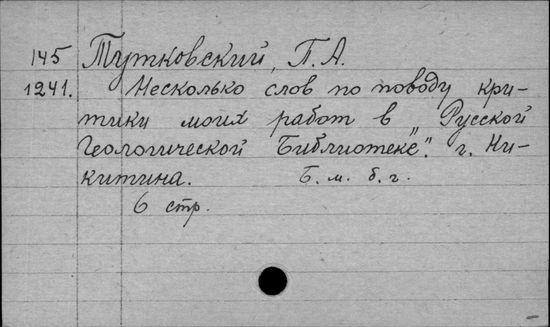 145 Тутковский, П. А.
1241. Несколько слов по поводу кри-
тики моих работ в „Русской
Геологической Библиотеке". г. Ни-
китина. Б. м. б. г.
6 стр.